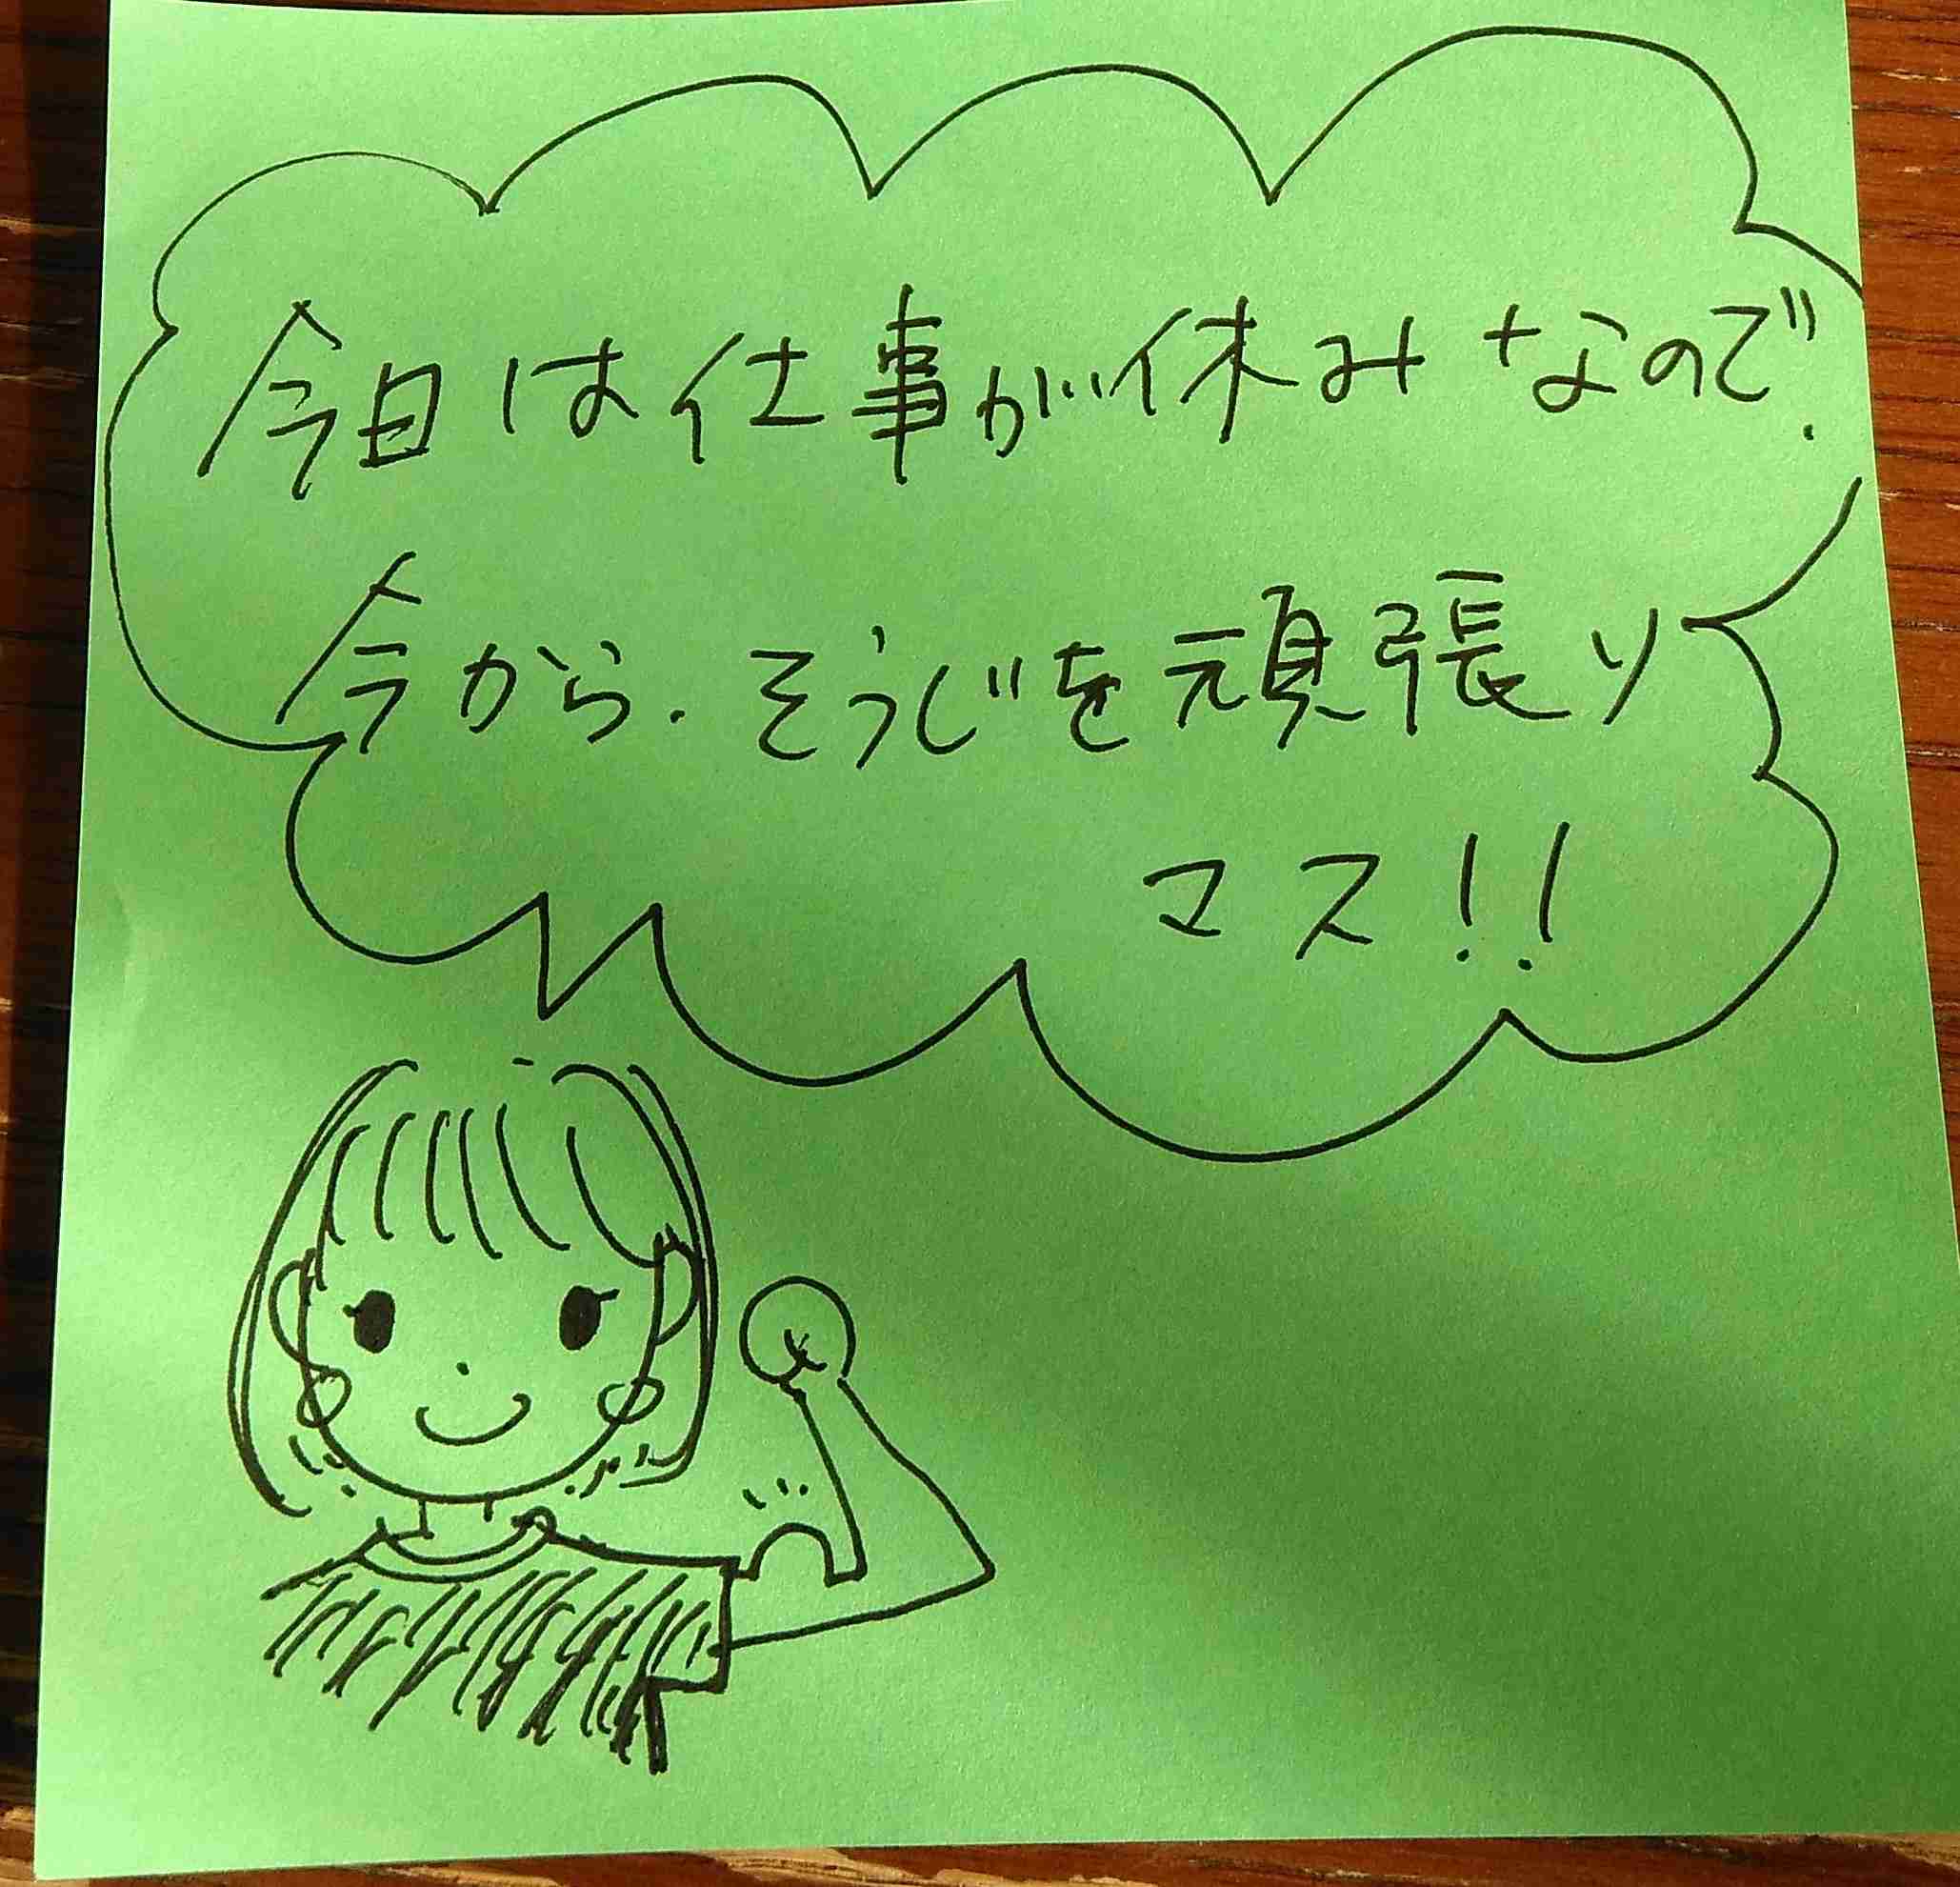 今日は仕事が休みなので、
今から、そうじを頑張り
マス!!